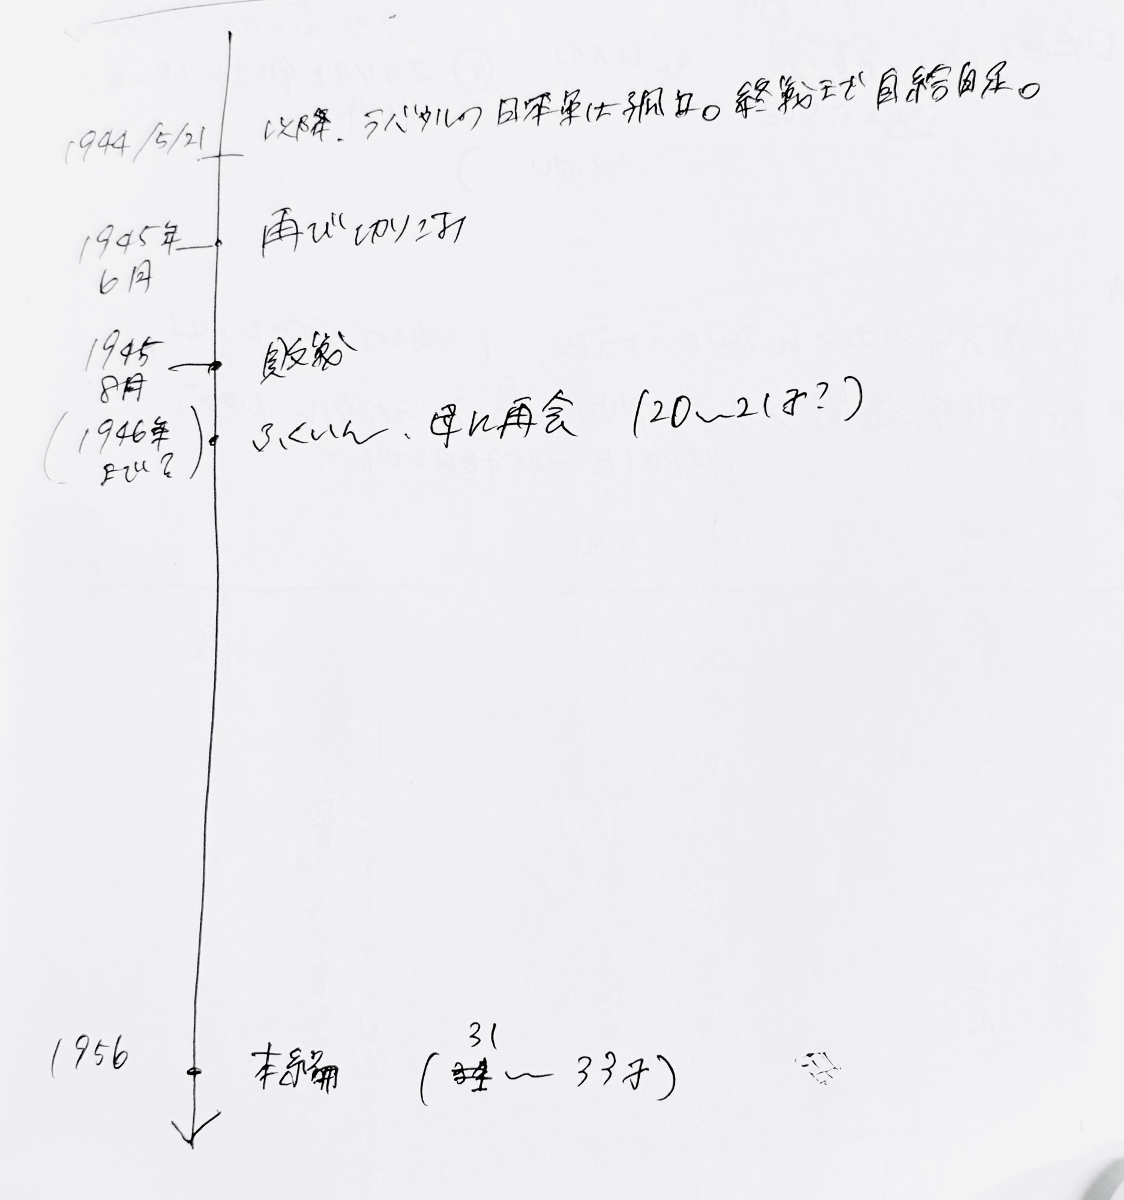 1944/5/21 以降、ラバウルの日本軍は孤立。終戦まで自給自足。
1945年
6月 再び切りこみ
1945
8月 敗戦
(1946年
までに?) ふくいん、母に再会 (20〜21才?)
31
1956 本編 (〜33才)